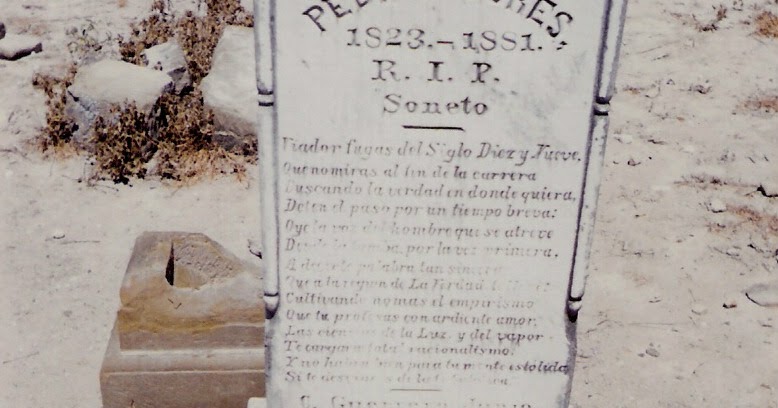 1823.–1881.
R. I. P.
Soneto
Viador fugas del Siglo Diez y Nueve.
Que no miras al fin de la carrera
Buscando la verdad en donde quiera,
Deten el paso por un tiempo breve:
Oye la voz del hombre que se atreve
Desde la tumba, por la vez primera,
A decirte palabra tan sincera
Que a la region de La Verdad
Cultivando nomas el empirismo
Que tu profesas con ardiente amor,
Las ciencias de la Luz, y del vapor
Te cargara fatal racionalismo.
Y no habra para tu mente estolida,
Si te de la
C. Guerrero Junio